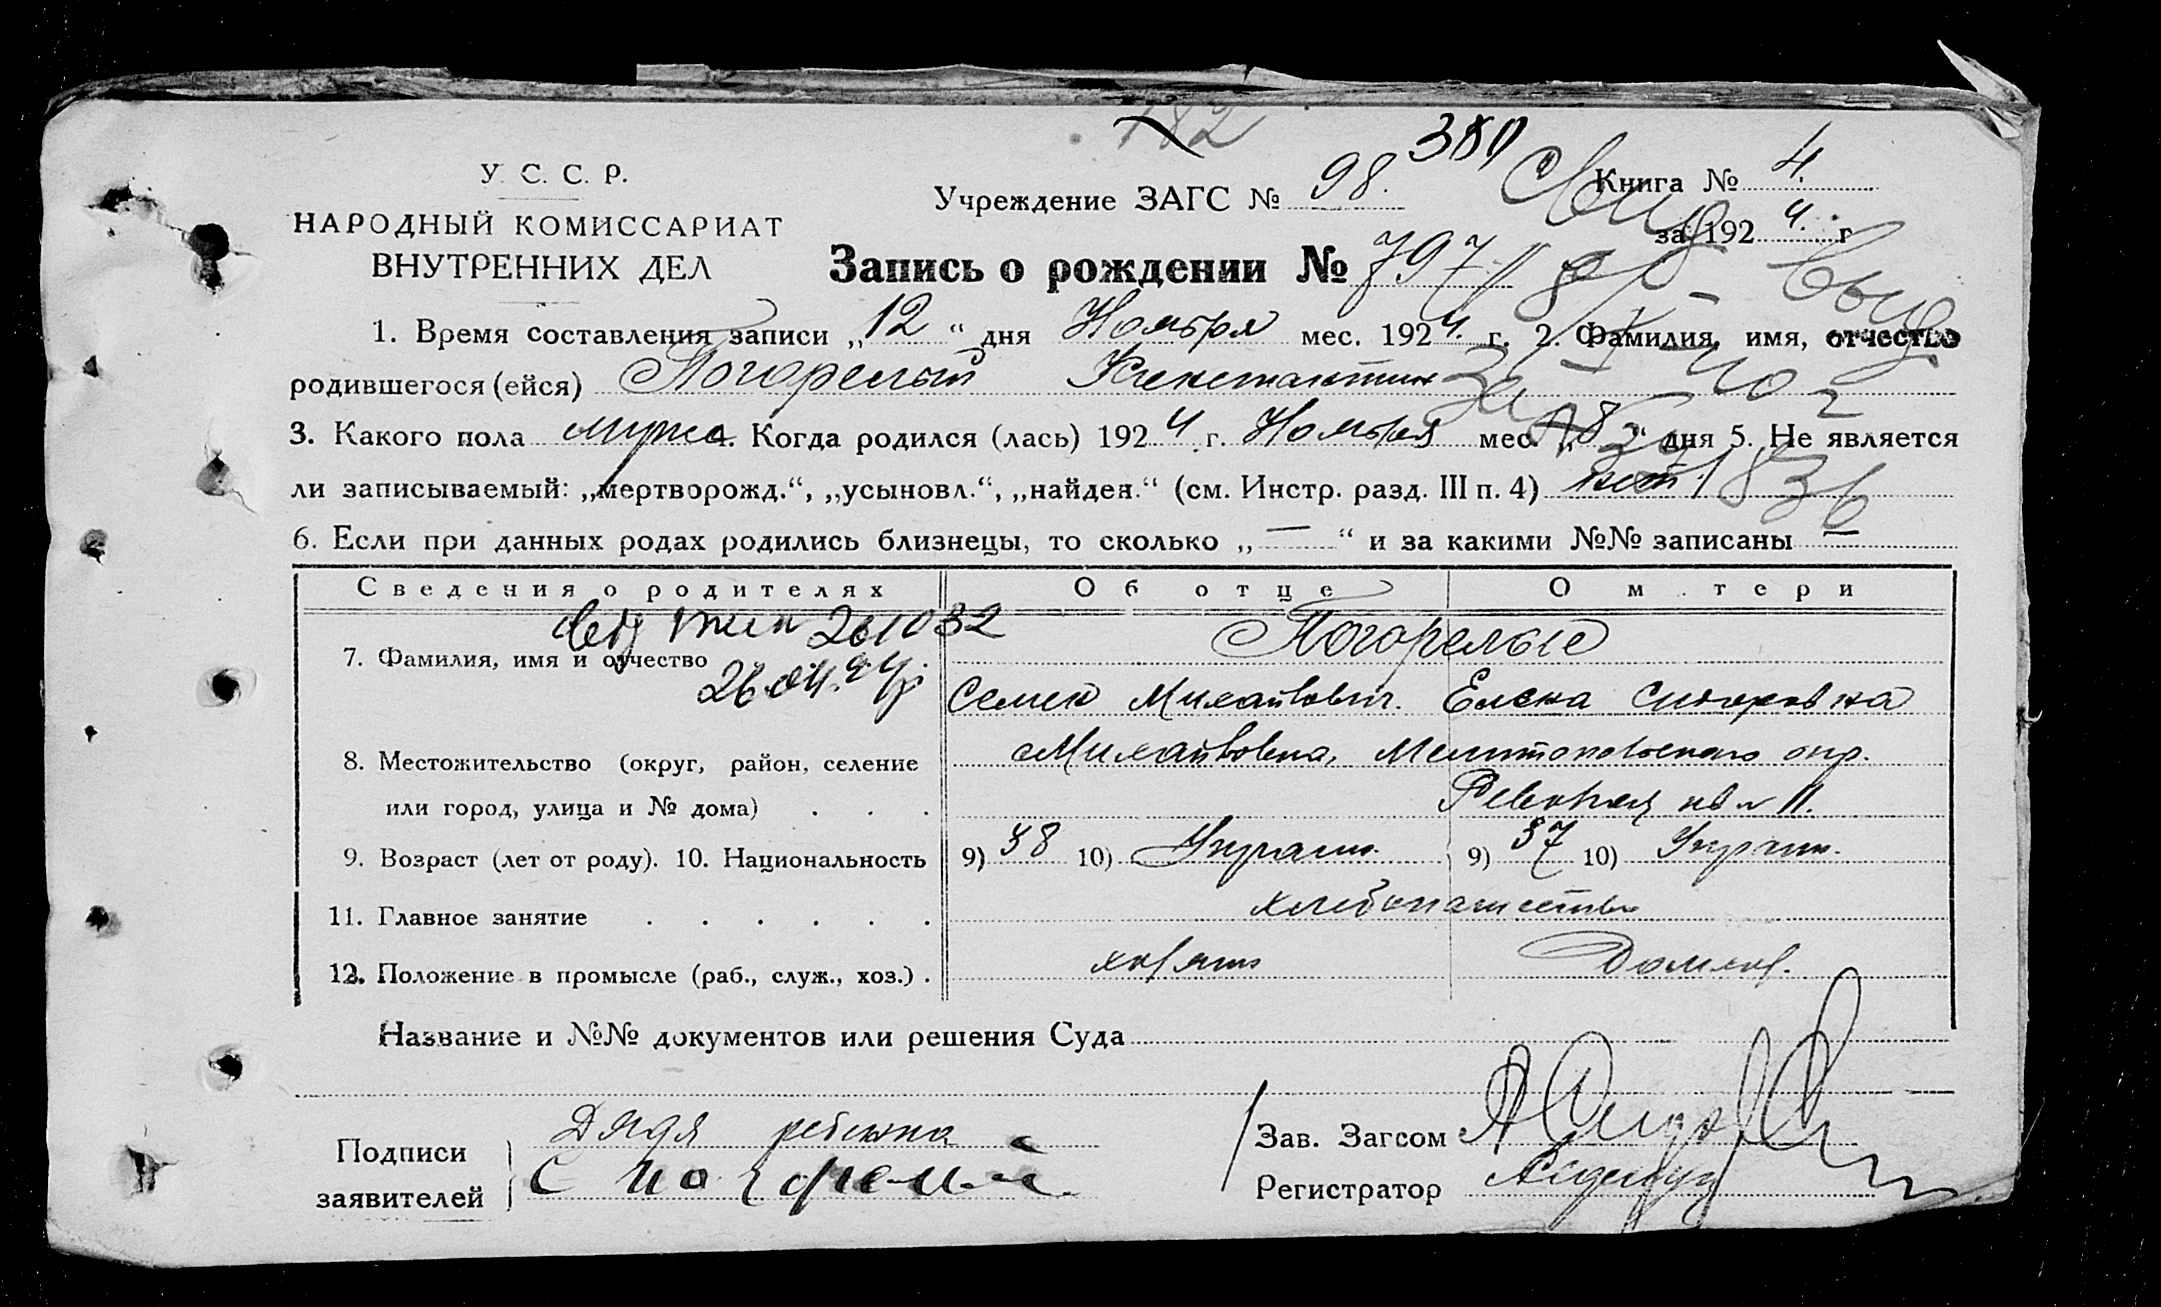 182
380
У. С. С. Р.
НАРОДНЫЙ КОМИССАРИАТ
ВНУТРЕННИХ ДЕЛ
Учреждение ЗАГС № 98.
Книга № 4.
за 1924. г.
Запись о рождении № 797
1. Время составления записи „12“ дня Ноября мес. 1924. г. 2. Фамилия, имя, отчество
родившегося (ейся) Погорелый Константин
3. Какого пола мужс 4. Когда родился (лась) 1924 г. Ноября мес. „8“ дня 5. Не является
ли записываемый: „мертворожд.“, „усыновл.“, „найден.“ (см. Инстр. разд. III п. 4) нет
6. Если при данных родах родились близнецы, то сколько „—“ и за какими №№ записаны —
Сведения о родителях Об отце О м тери
7. Фамилия, имя и отчество Погорелые
261032
26.04.
Семен Михайлович. Елена Сидоровна
8. Местожительство (округ, район, селение
или город, улица и № дома) . . .
Михайловка, Мелитопольского окр.
11.
9. Возраст (лет от роду). 10. Национальность 9) 38 10) Украин. 9) 37 10) Украин.
11. Главное занятие . . . . . . хлебопашество
12. Положение в промысле (раб., служ., хоз.) . хозяин Домхоз.
Название и №№ документов или решения Суда
Подписи
заявителей
Дядя ребенка
С Погорелий
Зав. Загсом
Регистратор